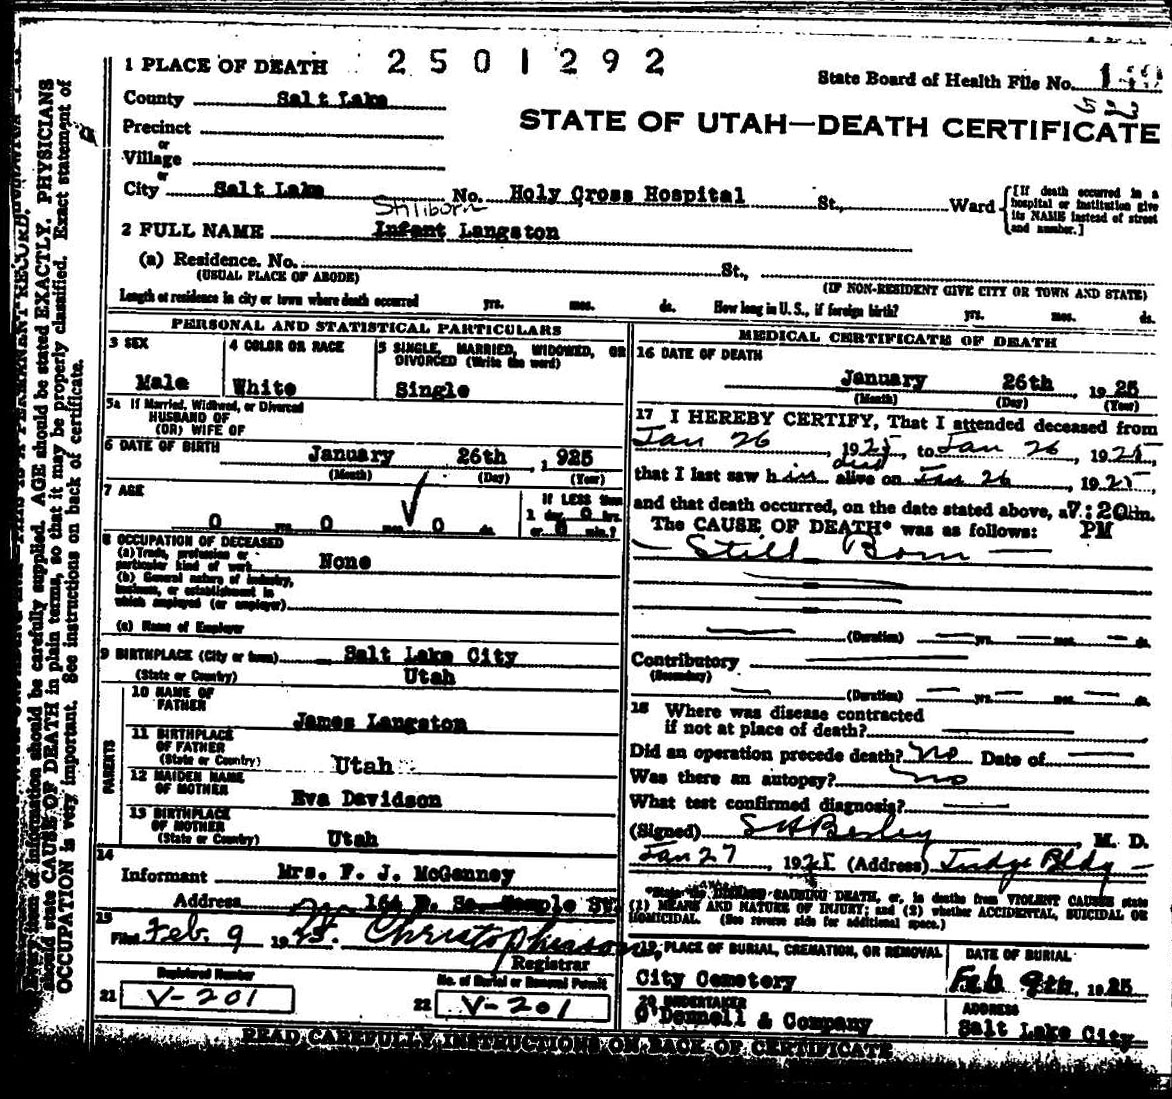 1 PLACE OF DEATH 2501292
State Board of Health File No.
52
County Salt Lake
STATE OF UTAH—DEATH CERTIFICATE
Precinct
or
Village
or
City Salt Lake No. Holy Cross Hospital St., Ward
[If death occurred in a hospital or institution give its NAME instead of street and number.]
Stillborn
2 FULL NAME Infant Langston
(a) Residence. No. St.,
(USUAL PLACE OF ABODE) (IF NON-RESIDENT GIVE CITY OR TOWN AND STATE)
Length of residence in city or town where death occurred yrs. mos. ds. How long in U.S., if foreign birth? yrs. mos. ds.
PERSONAL AND STATISTICAL PARTICULARS
3 SEX
Male
4 COLOR OR RACE
White
5 SINGLE, MARRIED, WIDOWED, OR
DIVORCED (Write the word)
Single
5a If Married, Widowed, or Divorced
HUSBAND OF
(OR) WIFE OF
6 DATE OF BIRTH January 26th, 1925
(Month) (Day) (Year)
7 AGE
0 yrs. 0 mos. 0 ds.
If LESS than
1 day, 0 hrs.
or 0 min.?
8 OCCUPATION OF DECEASED
(a) Trade, profession or
particular kind of work None
(b) General nature of industry,
business, or establishment in
which employed (or employer)
(c) Name of Employer
9 BIRTHPLACE (City or town) Salt Lake City
(State or Country) Utah
PARENTS
10 NAME OF
FATHER
James Langston
11 BIRTHPLACE
OF FATHER
(State or Country) Utah
12 MAIDEN NAME
OF MOTHER
Eva Davidson
13 BIRTHPLACE
OF MOTHER
(State or Country) Utah
14
Informant Mrs. F. J. McGenney
Address
15
Filed Feb. 9 1925. Christopherson,
Registrar
Registered Number
21 V-201
No. of Burial or Removal Permit
22 V-201
MEDICAL CERTIFICATE OF DEATH
16 DATE OF DEATH
January 26th, 1925
(Month) (Day) (Year)
17 I HEREBY CERTIFY, That I attended deceased from
Jan 26, 1925, to Jan 26, 1925,
dead
that I last saw him alive on Jan 26, 1925,
and that death occurred, on the date stated above, at 7:20 m.
PM
The CAUSE OF DEATH* was as follows:
Still Born
(Duration) yrs. mos. ds.
Contributory
(Secondary)
(Duration) yrs. mos. ds.
18 Where was disease contracted
if not at place of death?
Did an operation precede death? no Date of
Was there an autopsy? no
What test confirmed diagnosis?
(Signed) S H Besley M. D.
Jan 27, 1925 (Address) Judge Bldg
*State the DISEASE CAUSING DEATH, or, in deaths from VIOLENT CAUSES state
(1) MEANS AND NATURE OF INJURY; and (2) whether ACCIDENTAL, SUICIDAL OR
HOMICIDAL. (See reverse side for additional space.)
19 PLACE OF BURIAL, CREMATION, OR REMOVAL
City Cemetery
DATE OF BURIAL
Feb 9th, 1925
20 UNDERTAKER
O'Donnell & Company
ADDRESS
Salt Lake City
READ CAREFULLY INSTRUCTIONS ON BACK OF CERTIFICATE
THIS IS A PERMANENT RECORD.
item of information should be carefully supplied. AGE should be stated EXACTLY. PHYSICIANS
should state CAUSE OF DEATH in plain terms, so that it may be properly classified. Exact statement of
OCCUPATION is very important. See instructions on back of certificate.